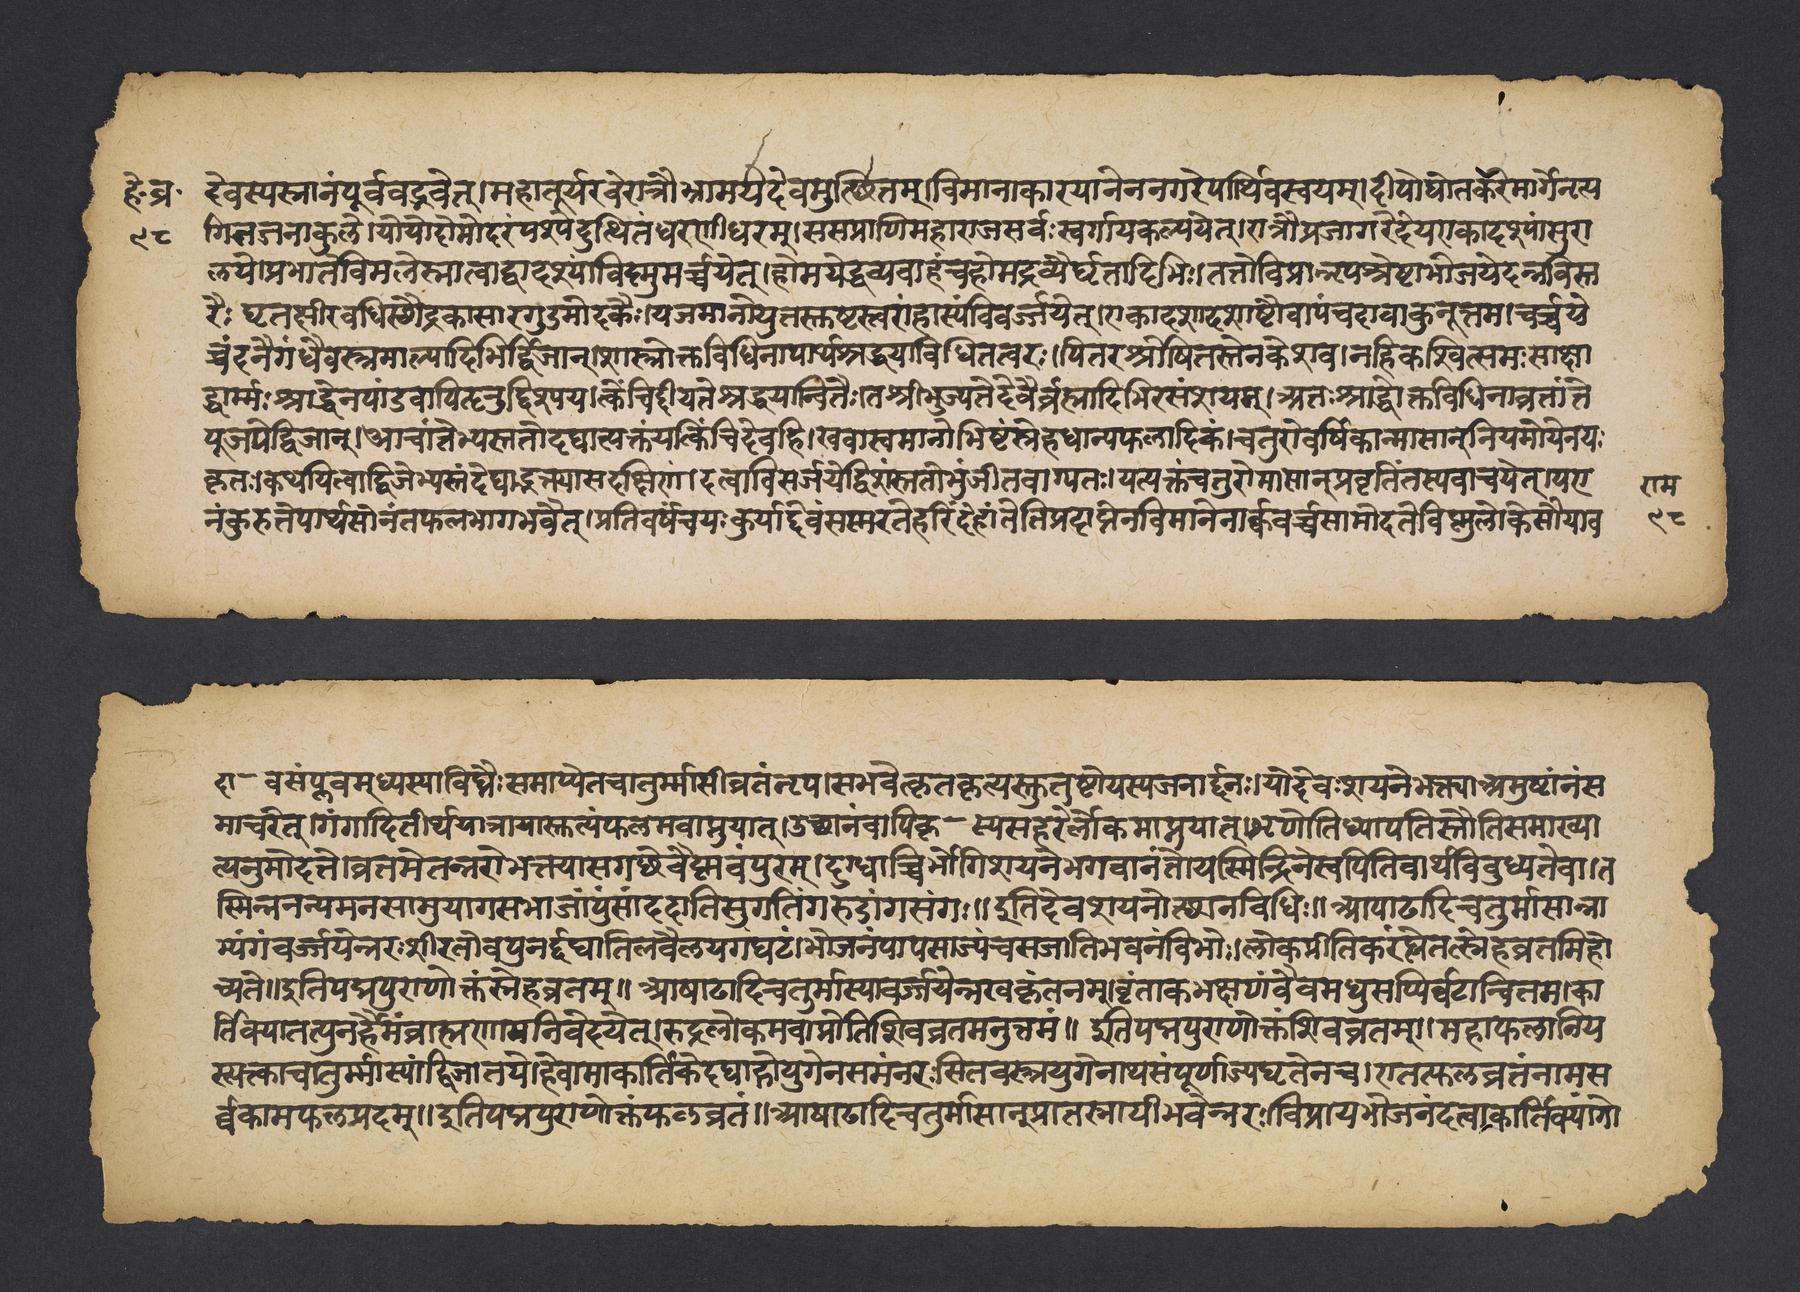 हे.व्र.
९८
देवस्यस्नानंपूर्ववद्भवेत्।महातूर्यरवेरात्रौभ्रामयेदेवमुत्थितम्।विमानाकारयानेननगरेपार्थिवस्वयम्।दीपोद्योतकरेमार्गेनृत्य
गितजनाकुले।योयोदामोदरंपश्येदुत्थितंधरणीधरम्।ससप्राणिमहाराजसर्वःस्वर्गायकल्पयेत्।रात्रौप्रजागरैर्देयएकादश्यांसुरा
लये।प्रभातेविमलेस्नात्वाद्वादश्यांविष्णुमर्च्चयेत्।होमयेद्धव्यवाहंचहोमद्रव्यैर्घृतादिभिः।ततोविप्रान्नृपश्रेष्टाभोजयेदन्नविस्त
रैः घृतक्षीरवधिक्षौद्रकासारगुडमोदकैः।यजमानोयुतस्तष्टस्त्वरांहास्यंविवर्ज्जयेत्।एकादशादशाष्टौवापंचद्वावाकुनूत्तम।चर्च्चये
च्चंदनैर्गंधैवस्त्रमाल्यादिभिर्द्विजान्।शास्त्रोक्तविधिनापार्थश्रद्धयाविधितत्परः।पितरश्रोषितस्तेनकेशव।नहिकश्चित्समःसाक्षा
द्धार्म्मःश्राद्धेनपांडवापितृनुद्दिश्यय।त्केंचिद्दीयतेश्रद्धयान्वितैः।तश्रीभुज्यतेदेवैर्व्रह्मादिभिरसंशयम्।अतःश्राद्धोक्तविधिनाव्रतांते
पूजयेद्विजान्।आचांतेभ्यस्ततोदद्यात्त्यक्तंयत्किंचिदेवहि।स्ववास्वमानोभिष्टंस्नेहधान्यफलादिकं।चतुरोवर्षिकान्मासान्नियमोयेनयः
कृतः।कथयित्वाद्विजेभ्यस्तंदेद्याद्भक्त्यासदक्षिणां।दत्वाविसर्जयेद्विप्रांस्ततोभुंजीतवाग्यतः।यत्यक्तंचतुरोमासान्प्रवृतिंतस्यवाचयेत्।एवए
नंकुरुतेपार्थसोनंतफलभागभवेत्।प्रतिवर्षंचयःकुर्याद्देवंसस्मरतेहरिंदेहांतेतिप्रदाप्नेनविमानेनार्क्कवर्च्चसामोदतेविष्णुलोकेसौयाव
राम
९८
दा—वसंप्लवम्ध्यस्याविघ्नैःसमाप्येतचातुर्म्मासीव्रतंनृप।सभवेत्कृतकृत्यस्तुतुष्टोयस्यजनार्द्दनः।योदेवःशायनेभक्त्याअमुष्टांनंस
माचरेत्।गंगादितीर्थयात्रायास्तत्यंफलमवाप्नुयात्।उद्यानंवापिकृ—स्यसहरेर्लोकमाप्नुयात्।शृणोतिध्यापतिस्तौतिसमाख्या
त्यनुमोदते।व्रतमेतन्नरोभक्तयासगछेवैष्णवंपुरम्।दुग्धाच्धिर्भोगिशयनेभगवानंतोयस्मिन्दिनेस्वपितिवार्थविबुध्यतेवा।त
स्मिन्नन्यमनसामुयागसभाजांपुंसांददातिसुगतिंगरुडांगसंगः॥इतिदेवशयनोत्थानविधिः॥आषाढादिचतुर्मासान्ना
भ्यंगंवर्ज्जयेन्नरःशीरतोवपुनर्द्दद्यातिलवैलयगंघटां।भोजनंपायसाज्यंचसजातिभवनंविभोः।लोकप्रीतिकरंधेतत्स्नेहव्रतमिहो
च्यते॥इतिपद्मपुराणोक्तंस्नेहव्रतम्॥ आषाढादिचतुर्मास्यावर्ज्जयेन्नखकृंतनम्।वृंताकभक्षणंवैवमधुसप्पिर्व्वटान्वितम्।का
र्तिक्यातत्पुनर्हैमंव्राह्मणायनिवेदयेत्।रुद्रलोकमवाप्नोतिशिवव्रतमनुत्तमं॥ इतिपद्मपुराणोक्तंशिवव्रतम्॥।महाफलानिय
स्त्यत्काचातुर्म्मास्यांद्विजातये।हैवामाकार्तिकेदद्याद्गोयुगेनसमंनरःसितवस्त्रयुगेनाथसंपूर्णाज्यघृतेनच।एतत्फलव्रतंनामस
र्व्वकामफलप्रदम्॥इतिपद्मपुराणोक्तंफलव्रतं॥आषाढादिचतुर्मासान्प्रातस्नायीभवेन्नरः।विप्रायभोजनंदत्वाकार्तिक्यांगो